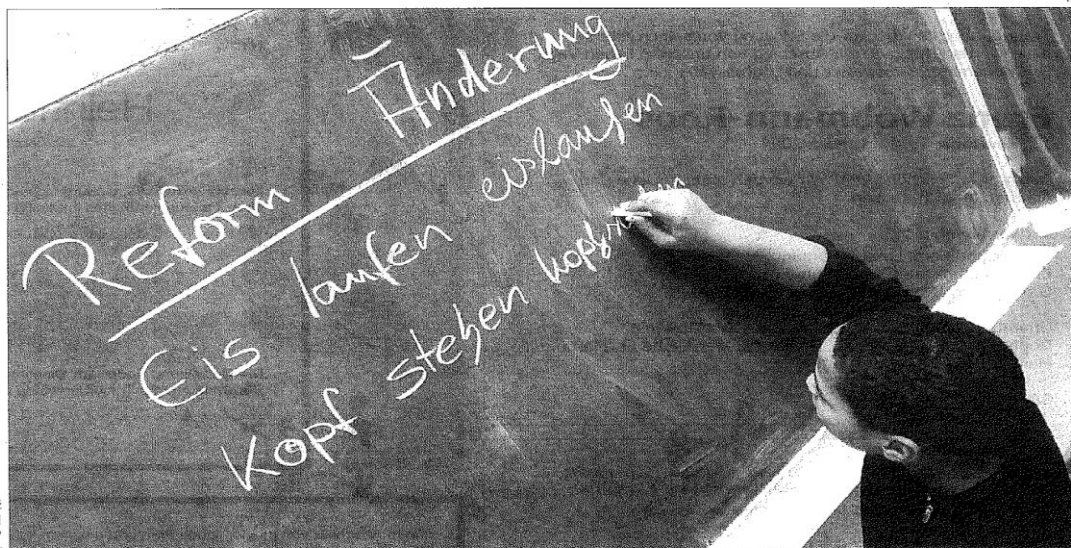 Reform Änderung
Eis laufen eislaufen
Kopf stehen